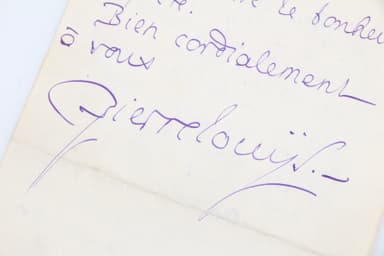 le bonheu
Bien cordialement
à vous
Pierre Louÿs. _